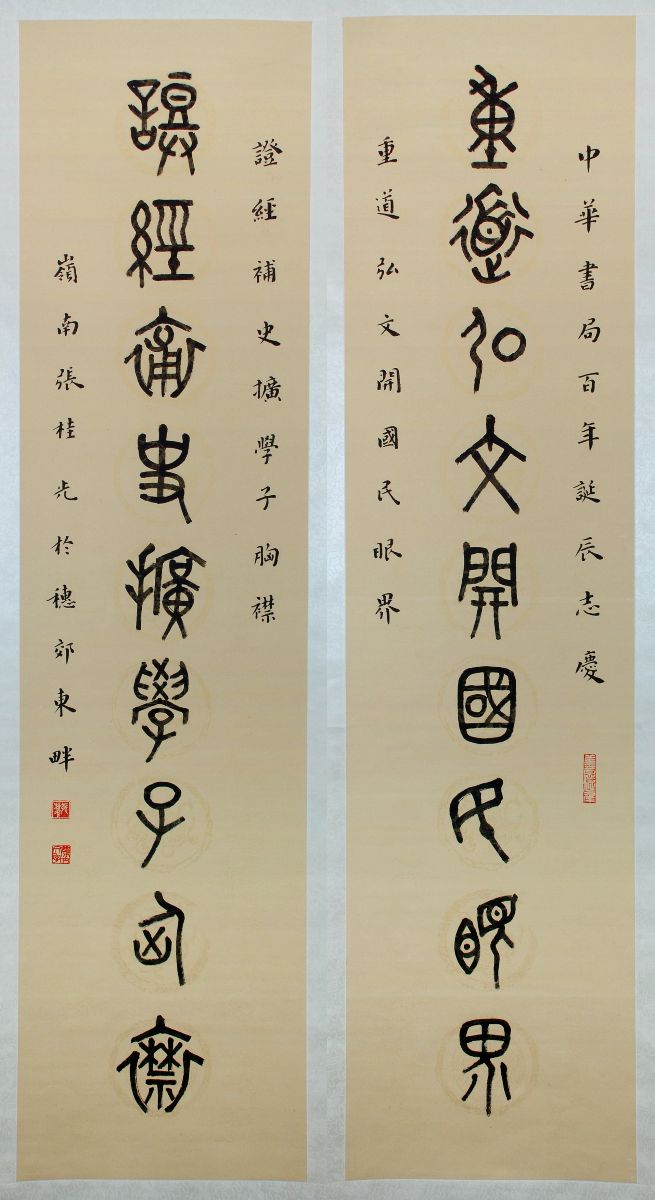 中華書局百年誕辰志慶
重道弘文開國民眼界
重道弘文開國民眼界
證經補史擴學子胸襟
證經補史擴學子胸襟
嶺南張桂光於穗郊東畔